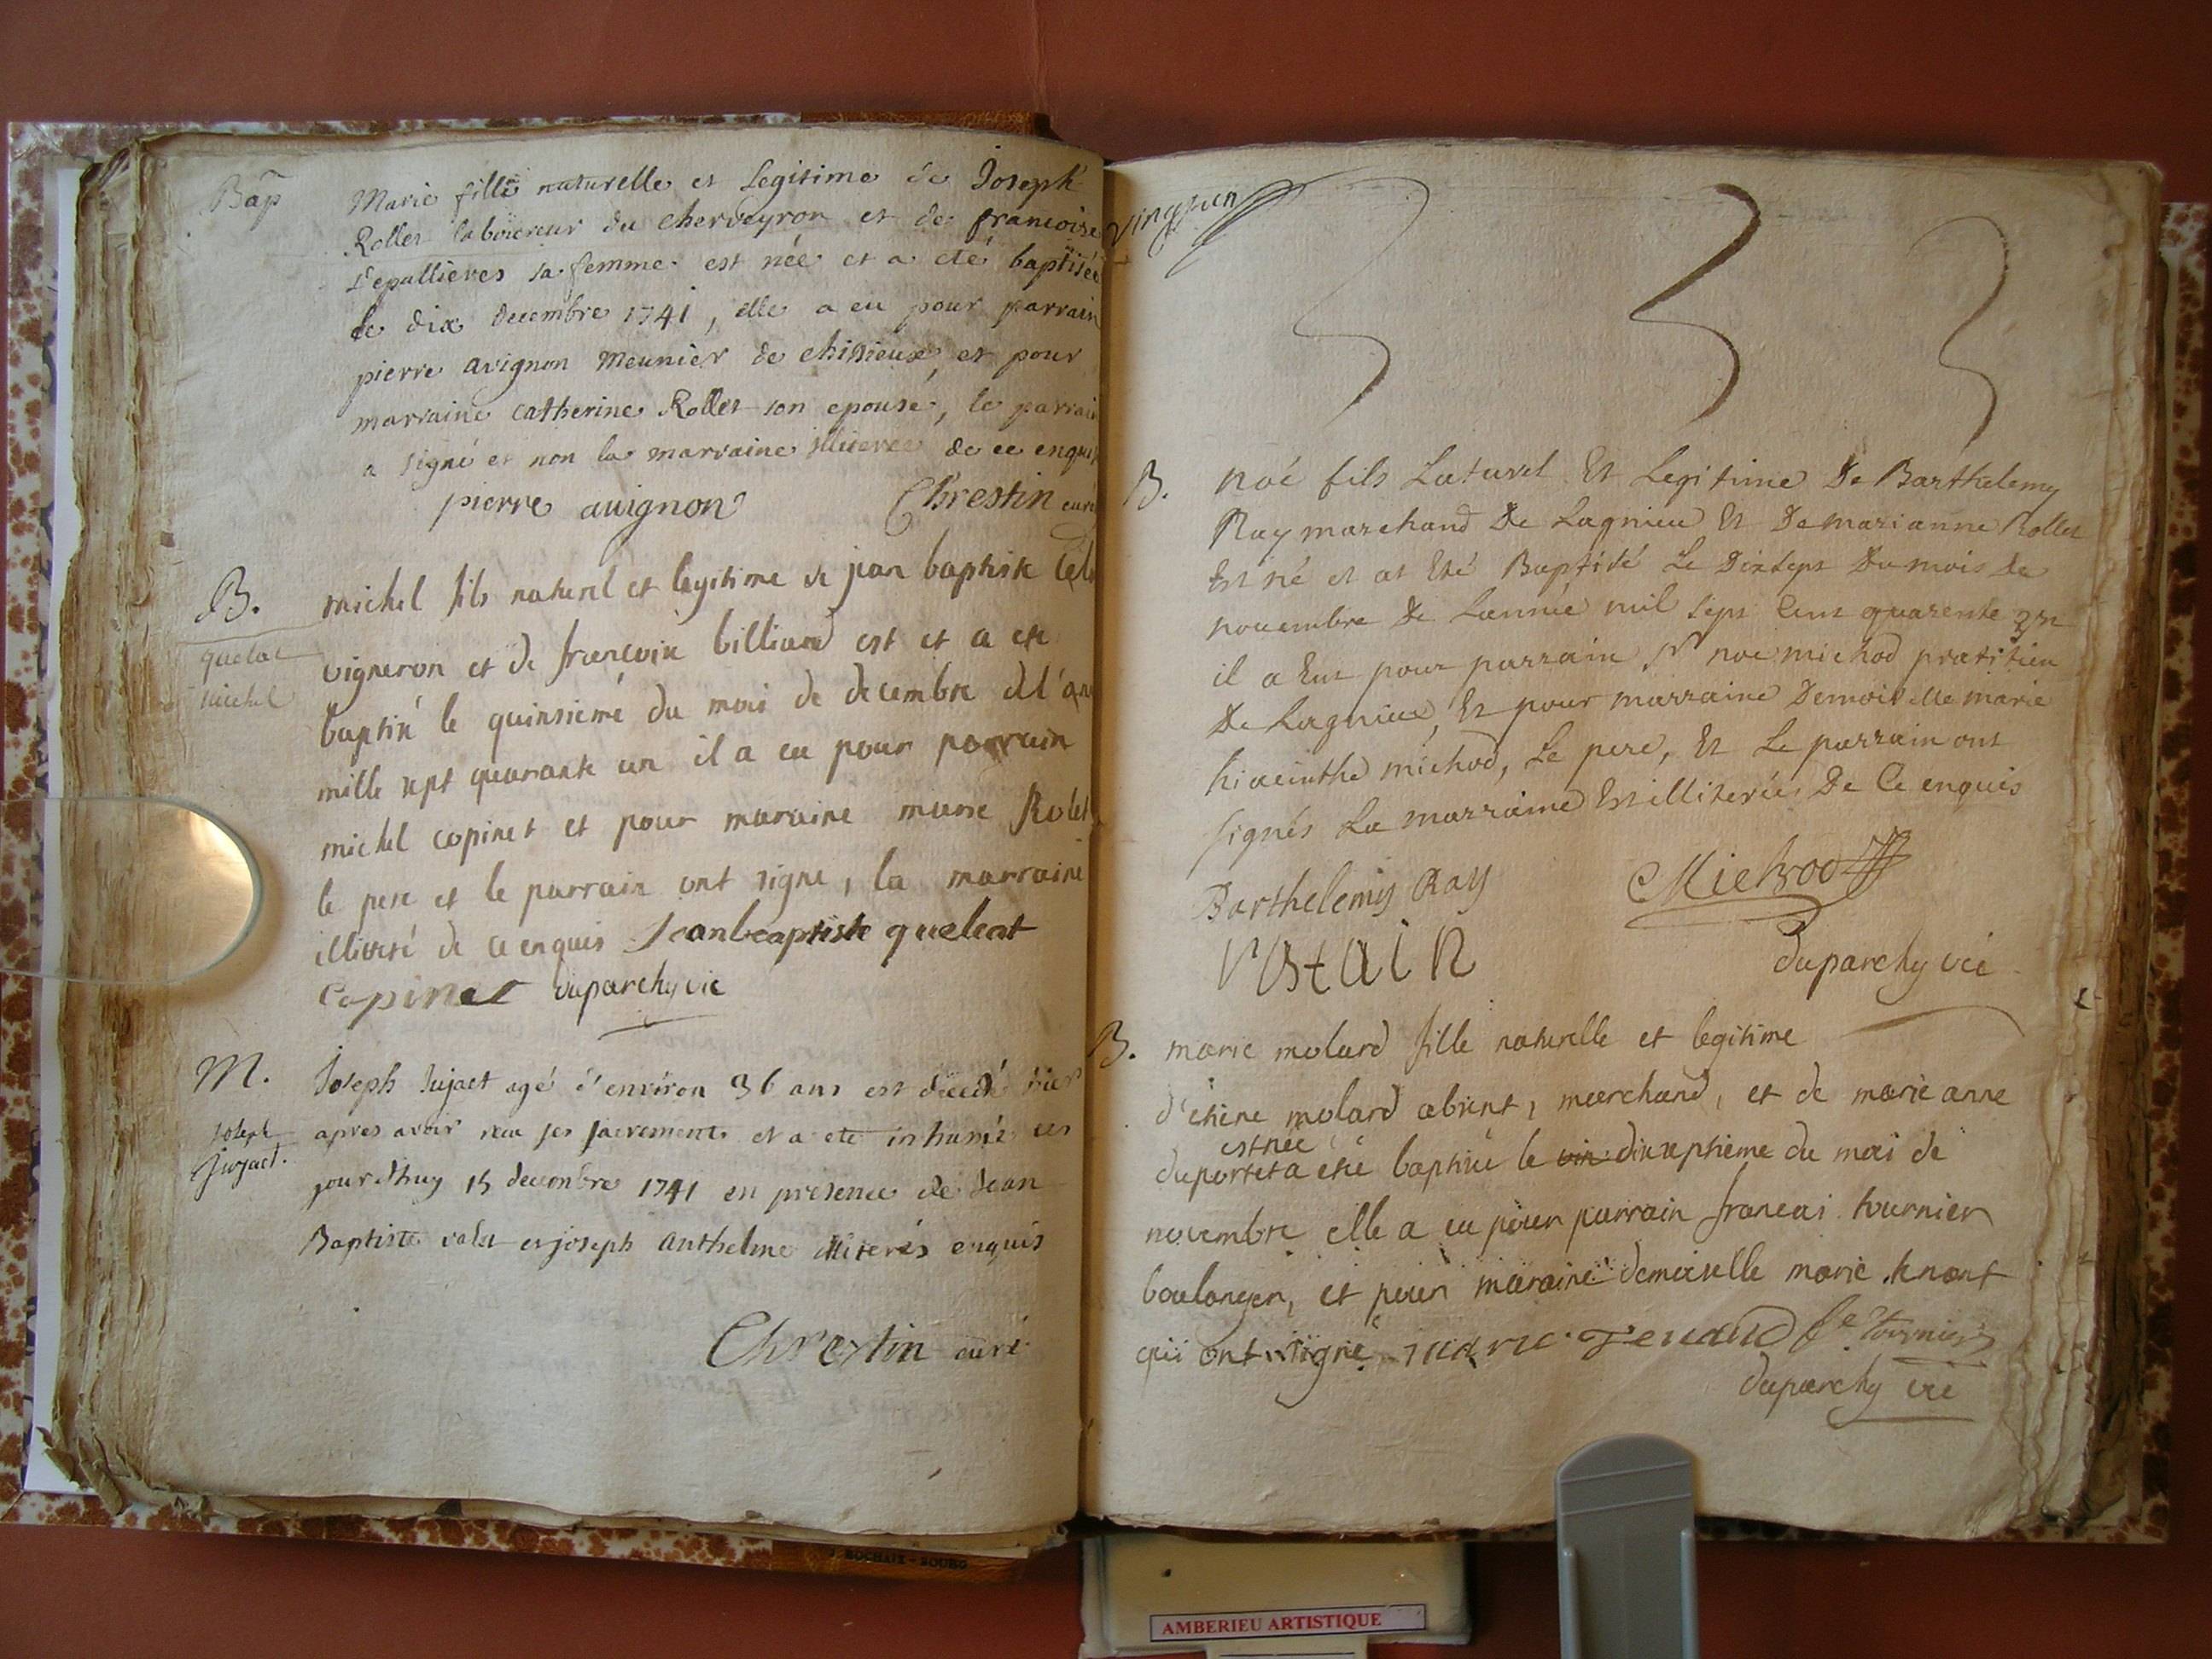 Bap
Marie fille naturelle et Legitime de Joseph
Rollet laboureur du cherveyron et de francoise
Depallieres sa femme est née et a été baptisée
le dix decembre 1741, elle a eu pour parrain
pierre avignon meunier de chissieux, et pour
marraine catherine Rollet son epouse, le parrain
a signé et non la marraine illiterée de ce enquis
pierre auignon Chrestin curé
B.
quelat
michel
michel fils naturel et legitime de jean baptiste
vigneron et de francoise billiard est et a ete
baptisé le quinsieme du mois de decembre de l'an
mille sept quarante un il a eu pour parrain
michel copinet et pour maraine marie Rolet
le pere et le parrain ont signe, la marraine
illiteré de ce enquis Jeanbeaptiste quelat
Copinet duparchy vic
M.
joseph
jujact.
Joseph Jujact agé d'environ 36 ans est decedé hier
apres avoir recu ses sacrements et a ete inhumé ces
jourdhuy 15 decembre 1741 en presence de Jean
Baptiste valet et joseph Anthelme illiterés enquis
Chrestin curé
vingt un
B.
Noé fils Naturel Et Legitime De Barthelemy
Ray marchand De Lagnieu Et De marianne Rollet
Est né et at Eté Baptisé Le Dixsept Du mois de
novembre De Lannée mil sept Cent quarente un
il a Eut pour parrain Sr noe michod pratitien
De Lagnieu, Et pour marraine Demoiselle marie
hiacinthe michod, Le pere, Et Le parrain ont
signés La marraine Est illiterée De Ce enquis
Barthelemy Ray Michod
duparchy vic
B.
marie molard fille naturelle et legitime
d'etiene molard absent, marchand, et de marie anne
est née
duport et a eté baptisé le vin dixseptieme du moi de
novembre elle a eu pour parrain francai tournier
boulonger, et pour maraine demoiselle marie tenant
qui ont signé marie Tenand fe Tournier
duparchy vic
J. ROCHAIX - BOURG
AMBERIEU ARTISTIQUE